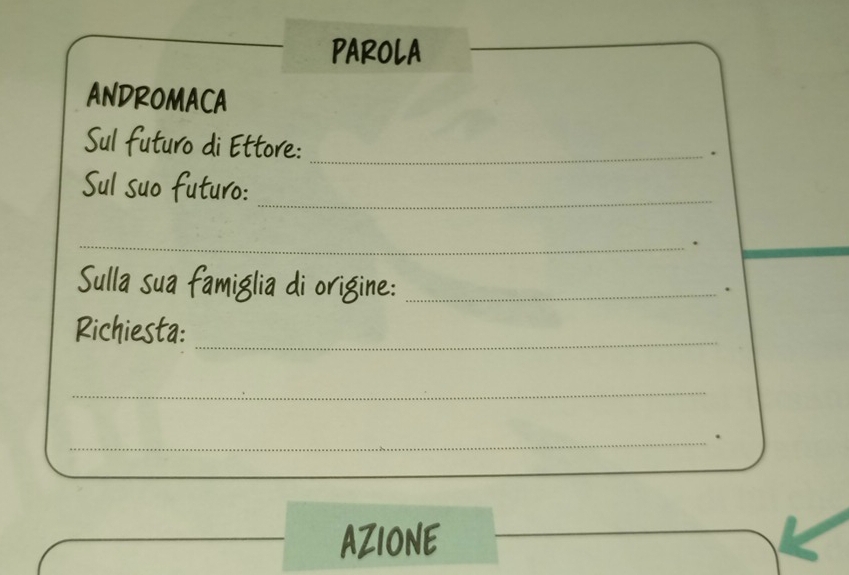 PAROLA
ANDROMACA
Sul futuro di Ettore: .
Sul suo futuro:
.
Sulla sua famiglia di origine: .
Richiesta:
.
AZIONE